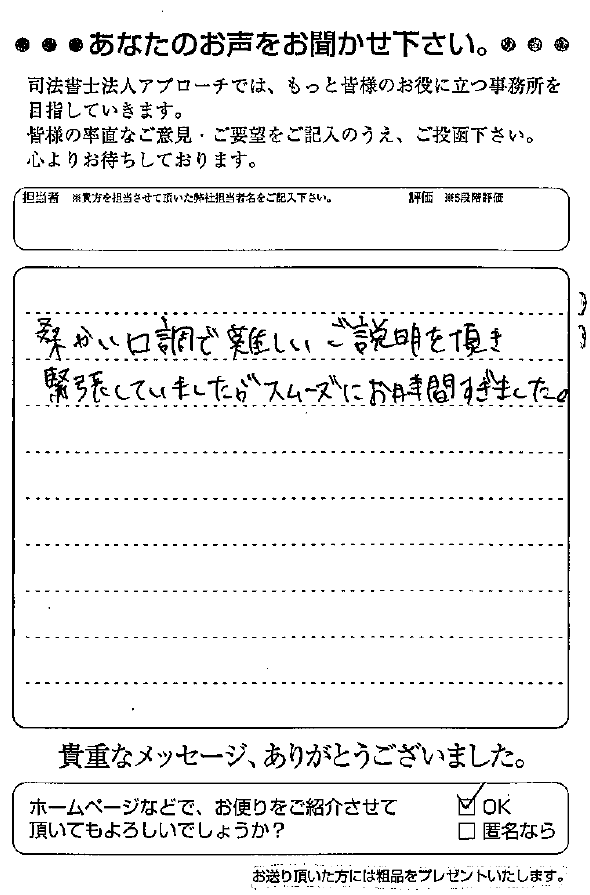 ●●●あなたのお声をお聞かせ下さい。●●●
司法書士法人アプローチでは、もっと皆様のお役に立つ事務所を
目指していきます。
皆様の率直なご意見・ご要望をご記入のうえ、ご投函下さい。
心よりお待ちしております。
担当者 ※貴方を担当させて頂いた弊社担当者名をご記入下さい。 評価 ※5段階評価
柔かい口調で難しいご説明を頂き
緊張していましたがスムーズにお時間すぎました。
貴重なメッセージ、ありがとうございました。
ホームページなどで、お便りをご紹介させて ☑ OK
頂いてもよろしいでしょうか？ □ 匿名なら
お送り頂いた方には粗品をプレゼントいたします。